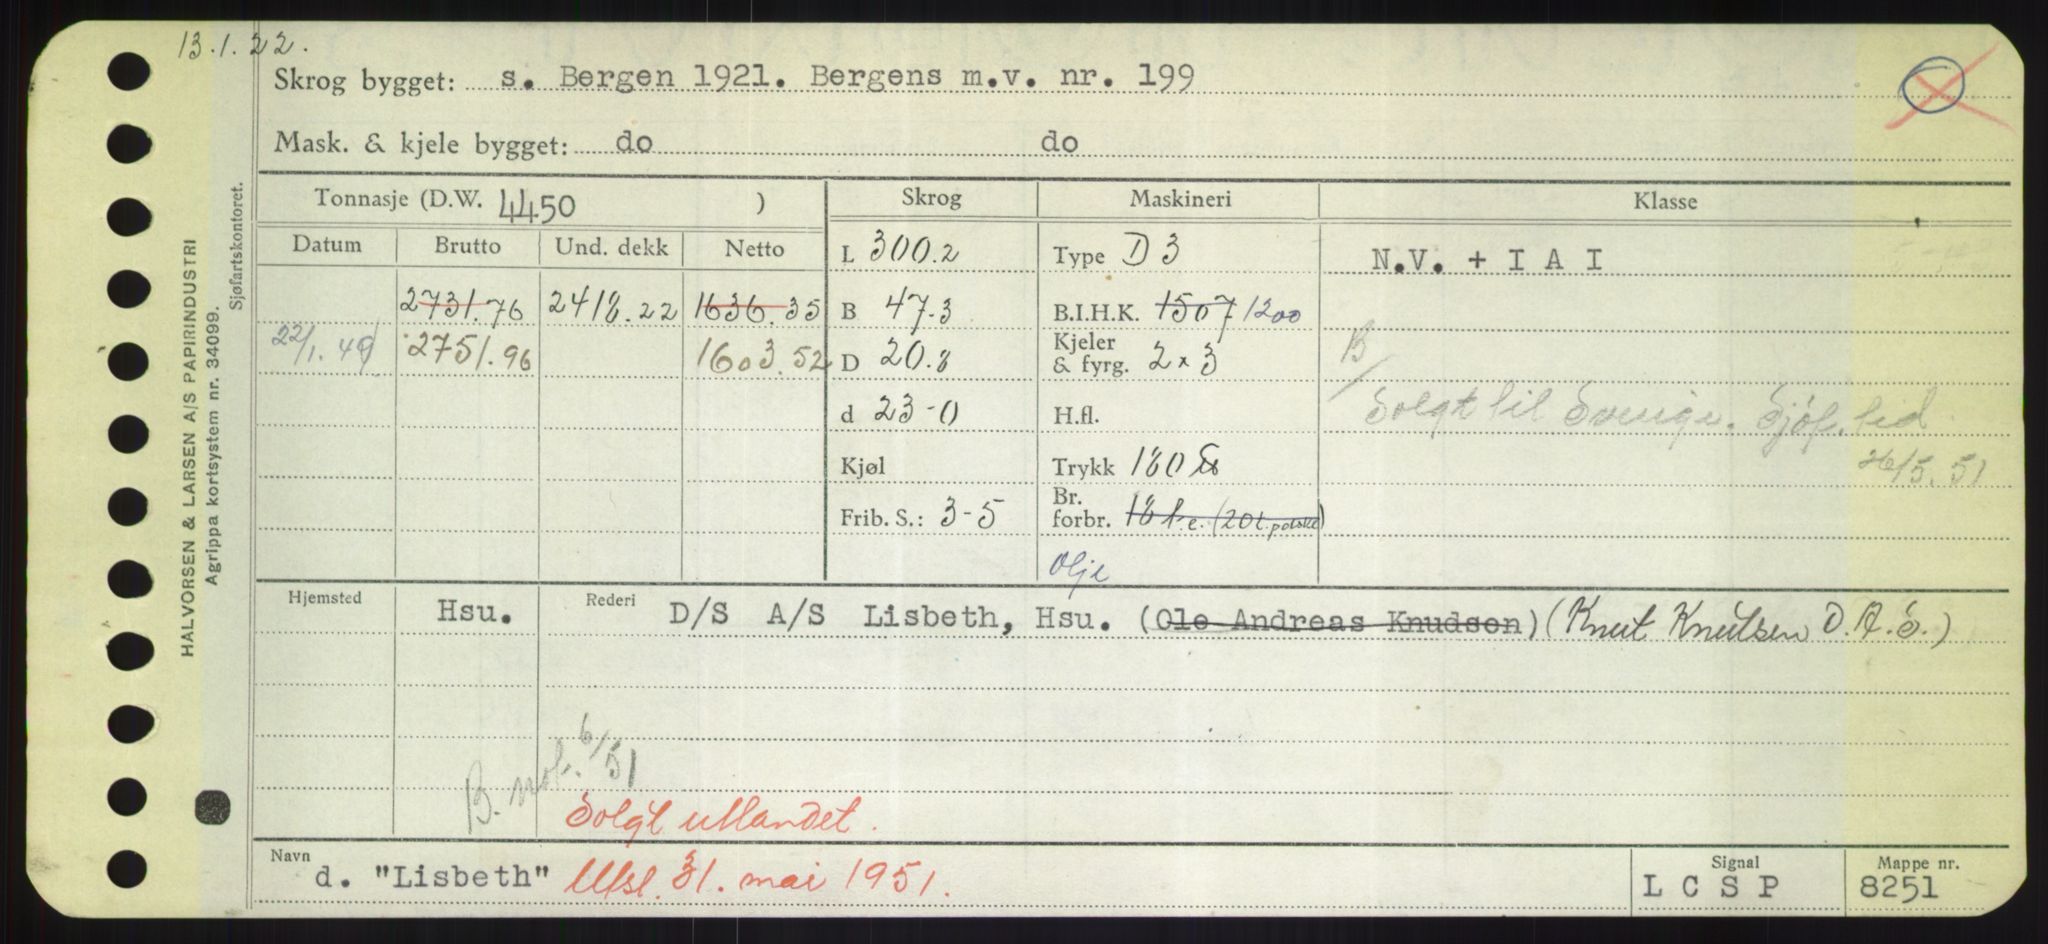 13.1.22.
Skrog bygget: s. Bergen 1921. Bergens m.v. nr. 199
Mask. & kjele bygget: do do
Tonnasje (D.W. 4450 ) Skrog Maskineri Klasse
Datum Brutto Und. dekk Netto L 300.2 Type D 3 N.V. + I A I
2731.76 2418.22 1636.35 B 47.3 B.I.H.K. 1507 1200
22/1.49 2751.96 1603.52 D 20.8 Kjeler & fyrg. 2 x 3 B/
d 23-0 H.fl. Solgt til Sverige. Sjøf.tid
Kjøl Trykk 180 26/5.51
Frib. S.: 3-5 Br. forbr. 18 t.e. (20t.polske)
olje
Hjemsted Hsu. Rederi D/S A/S Lisbeth, Hsu. (Ole Andreas Knudsen) (Knut Knutsen O.A.S.)
B. not. 6/51
Solgt utlandet.
Navn d. "Lisbeth" Utsl. 31. mai 1951. Signal L C S P Mappe nr. 8251
HALVORSEN & LARSEN A/S PAPIRINDUSTRI
Agrippa kortsystem nr. 34099.
Sjøfartskontoret.